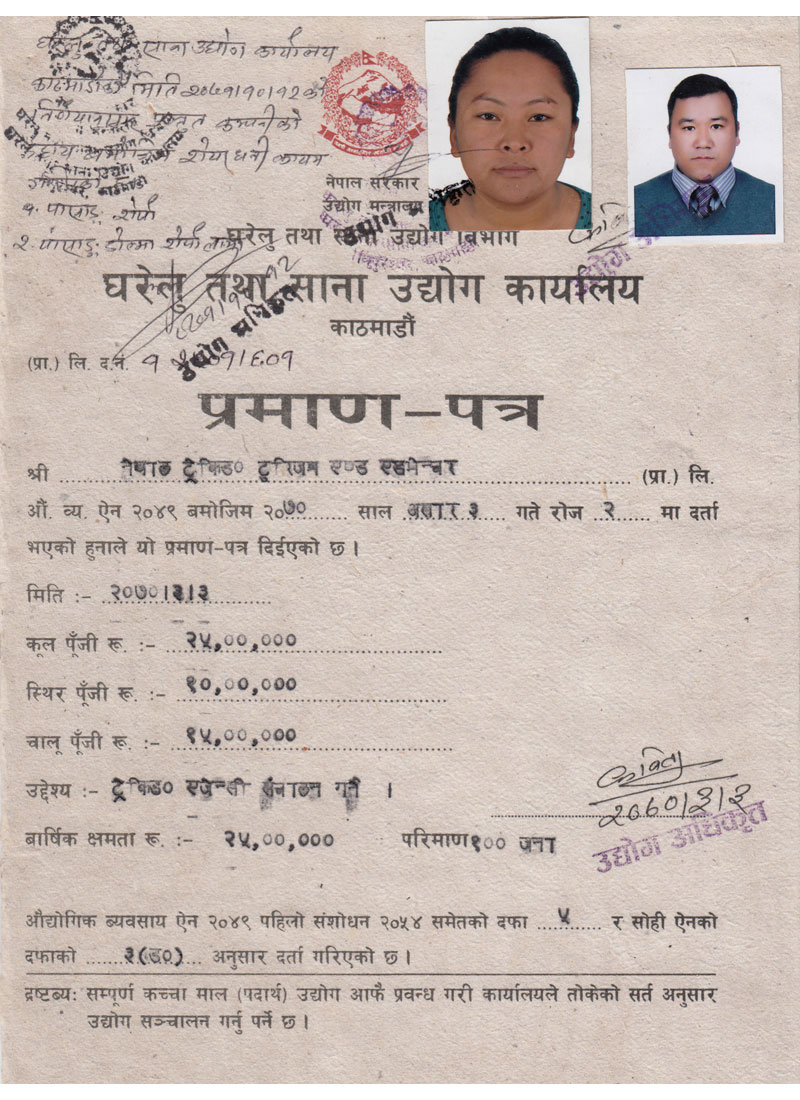 घरेलु तथा साना उद्योग कार्यालय
काठमाडौंको मिति २०७१।१०।१२ को
निर्णयानुसार कम्पनीको
शेयर धनी कायम
१. पासाङ शेर्पा
२. पासाङ डोल्मा शेर्पा लामा
नेपाल सरकार
उद्योग मन्त्रालय
घरेलु तथा साना उद्योग विभाग
घरेलु तथा साना उद्योग कार्यालय
काठमाडौं
उद्योग अधिकृत
(प्रा.) लि. द.नं.
प्रमाण-पत्र
श्री नेपाल ट्रेकिङ० टुरिजम एण्ड एडभेन्चर (प्रा.) लि.
औं. व्य. ऐन २०४९ बमोजिम २०७० साल अषार ३ गते रोज २ मा दर्ता
भएको हुनाले यो प्रमाण-पत्र दिईएको छ ।
मिति :- २०७०।३।३
कूल पूँजी रू. :- २५,००,०००
स्थिर पूँजी रू. :- १०,००,०००
चालू पूँजी रू. :- १५,००,०००
उद्देश्य :- ट्रेकिङ० एजेन्सी संचालन गर्ने ।
कविता
२०७०।३।३
उद्योग अधिकृत
बार्षिक क्षमता रू. :- २५,००,००० परिमाण १०० जना
औद्योगिक ब्यवसाय ऐन २०४९ पहिलो संशोधन २०५४ समेतको दफा ५ र सोही ऐनको
दफाको ३(ङ०) अनुसार दर्ता गरिएको छ ।
द्रष्टब्य: सम्पूर्ण कच्चा माल (पदार्थ) उद्योग आफै प्रवन्ध गरी कार्यालयले तोकेको सर्त अनुसार
उद्योग सञ्चालन गर्नु पर्ने छ ।